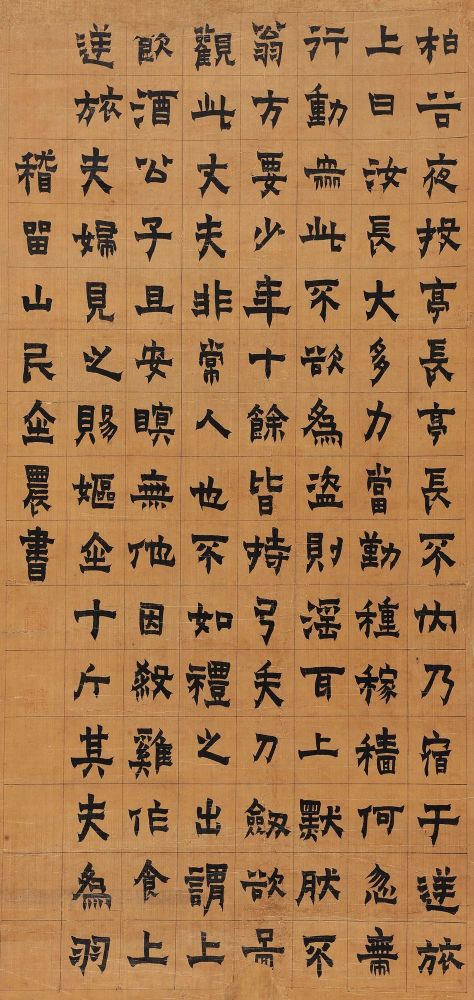 柏谷夜投亭長亭長不内乃宿于逆旅
上曰汝長大多力當勤種稼穡何忽
行動衆此不欲爲盜則淫耳上默然不
翁方要少年十餘皆持弓矢刀劔欲啚
觀此丈夫非常人也不如禮之出謂上
飲酒公子且安瞑無他因殺雞作食上
逆旅夫婦見之賜嫗金十斤其夫爲羽
稽留山民金農書